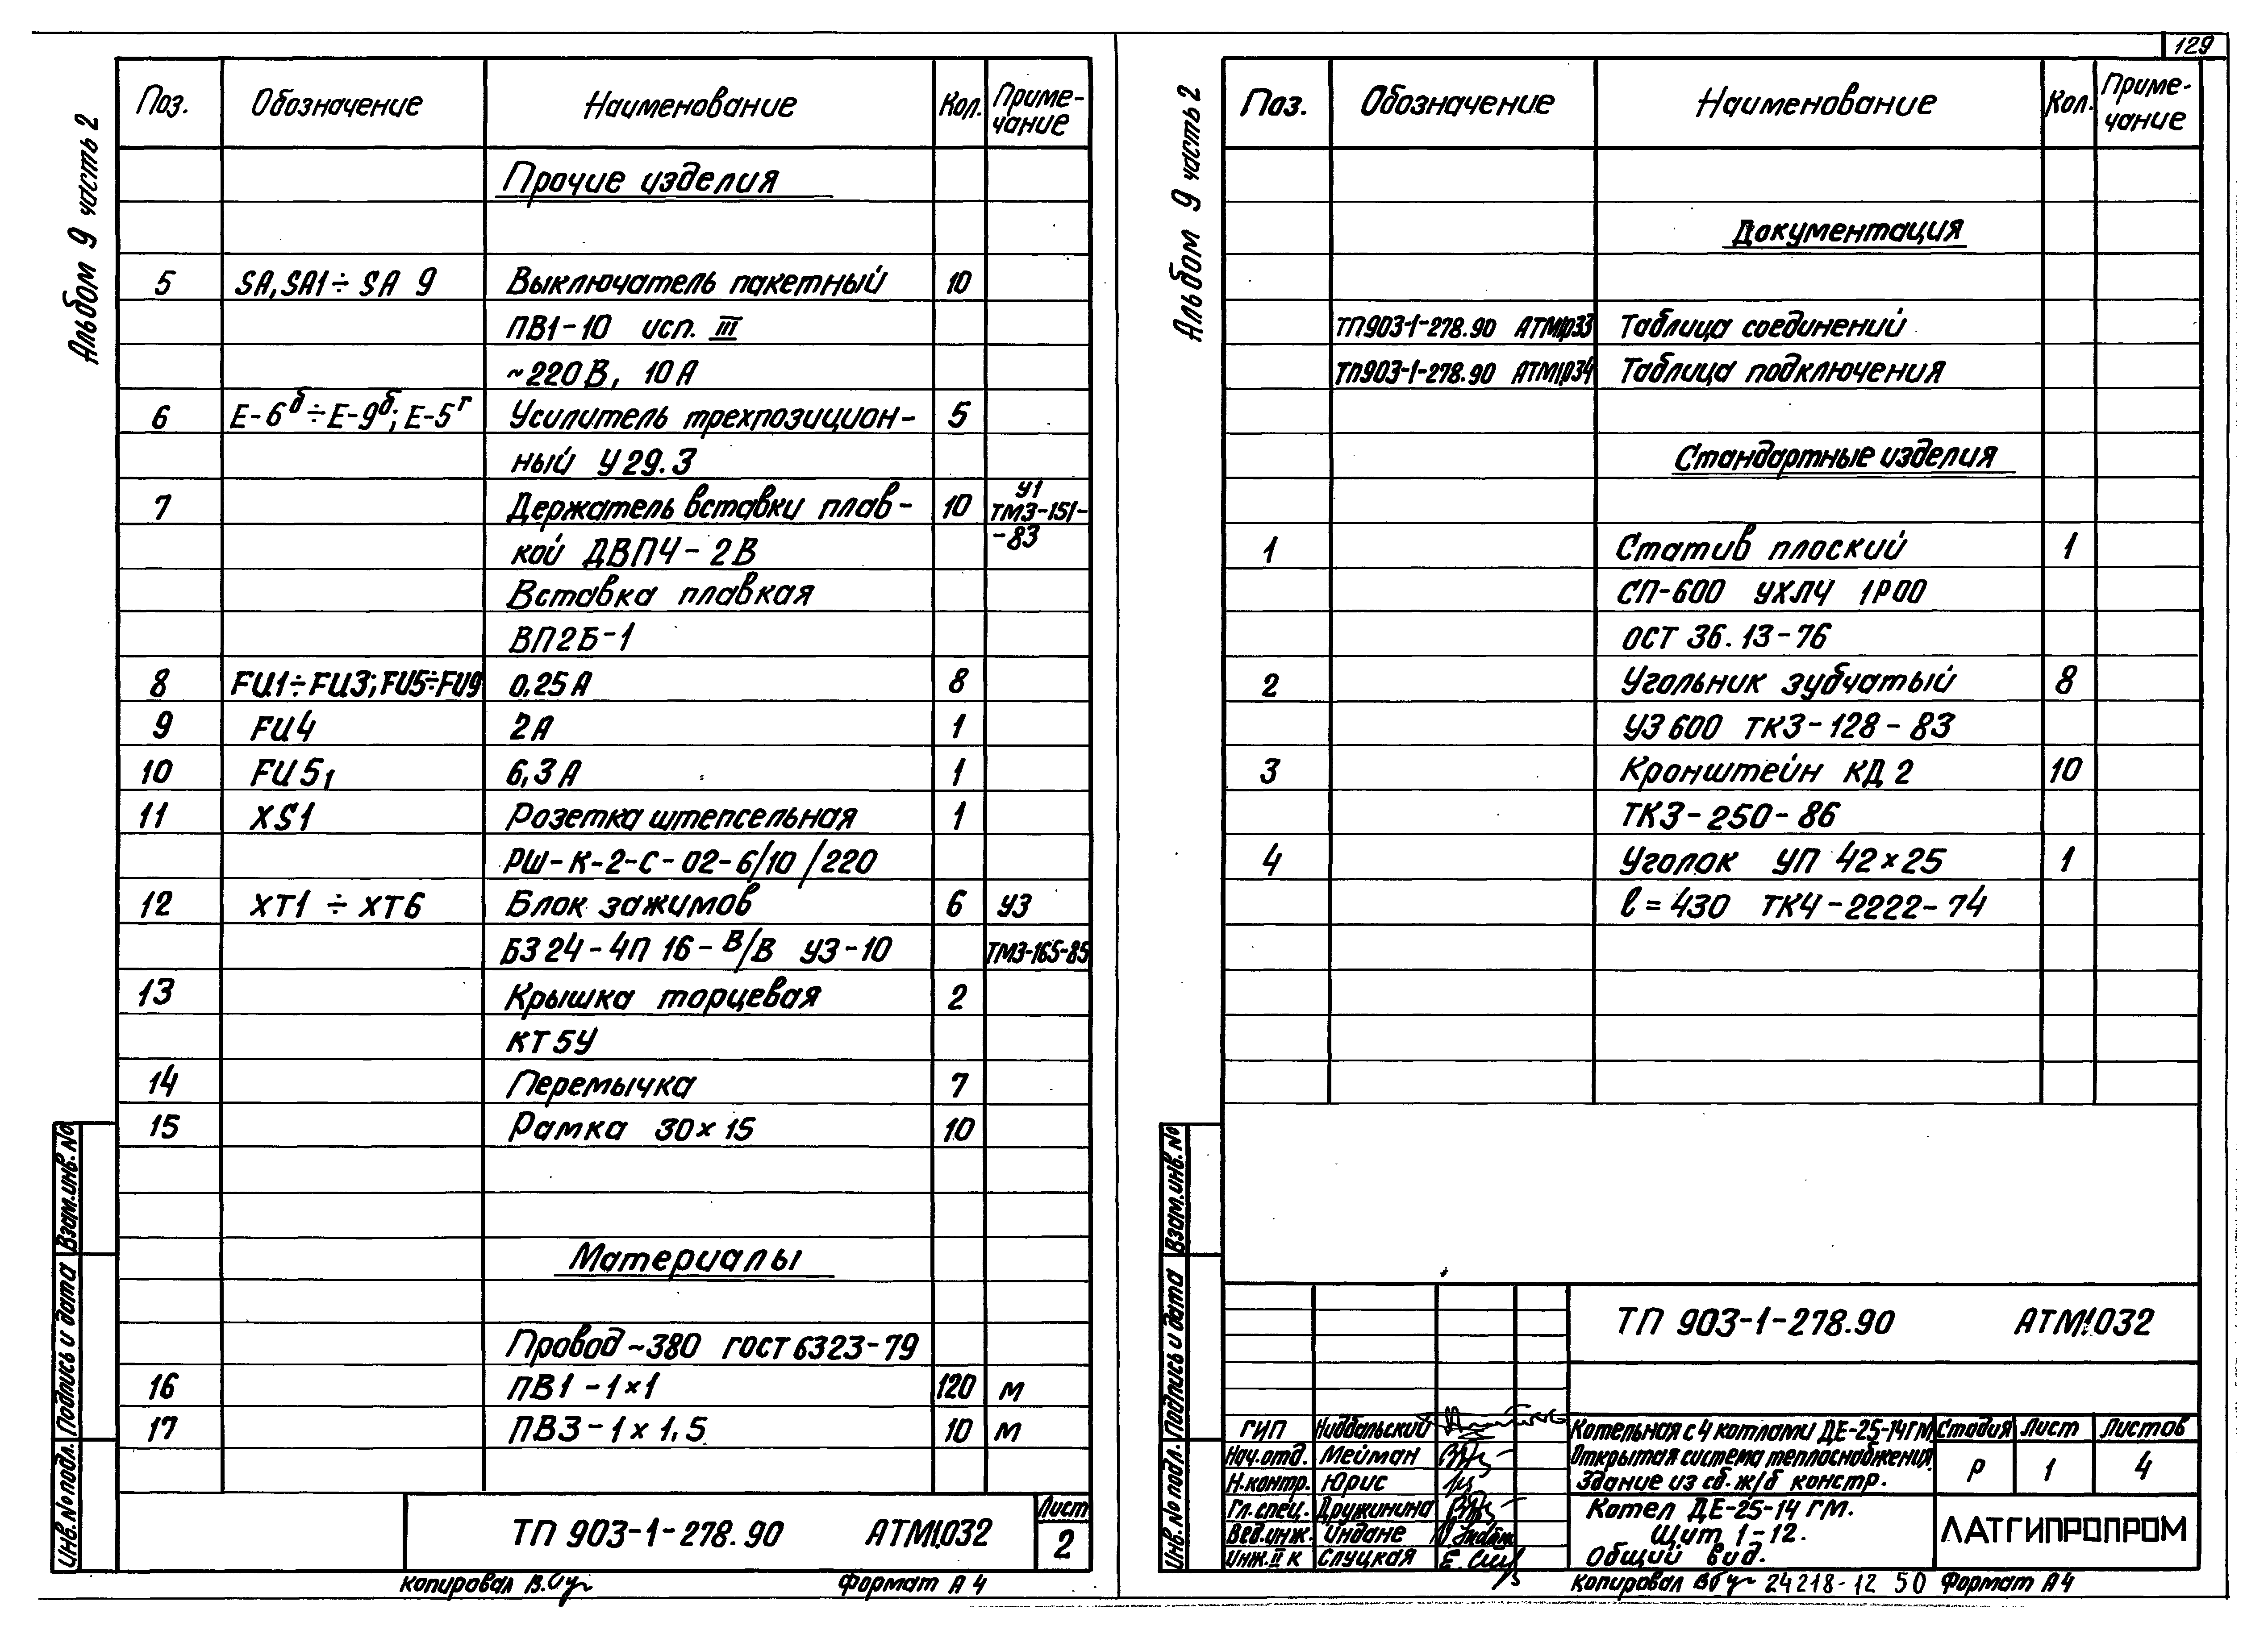 129
Альбом 9 часть 2
Поз. Обозначение Наименование Кол. Приме-
чание
Прочие изделия
5 SA, SA1÷SA 9 Выключатель пакетный 10
ПВ1-10 исп. III
~220В, 10А
6 Е-6б÷Е-9б; Е-5г Усилитель трехпозицион- 5
ный У29.3
7 Держатель вставки плав- 10 У1 ТМ3-151-
-83
кой ДВП4-2В
Вставка плавкая
ВП2Б-1
8 FU1÷FU3; FU5÷FU9 0,25А 8
9 FU4 2А 1
10 FU5₁ 6,3А 1
11 XS1 Розетка штепсельная 1
РШ-К-2-С-02-6/10/220
12 XT1÷XT6 Блок зажимов 6 У3
БЗ24-4П16-В/В У3-10 ТМ3-165-85
13 Крышка торцевая 2
КТ5У
14 Перемычка 7
15 Рамка 30×15 10
Материалы
Провод ~380 ГОСТ 6323-79
16 ПВ1-1×1 120 м
17 ПВ3-1×1,5 10 м
Взам.инв.№
Подпись и дата
Инв.№ подл.
ТП 903-1-278.90 АТМ1.032 Лист
2
Копировал Формат А4
Альбом 9 часть 2
Поз. Обозначение Наименование Кол. Приме-
чание
Документация
ТП903-1-278.90 АТМ1.033 Таблица соединений
ТП903-1-278.90 АТМ1.034 Таблица подключения
Стандартные изделия
1 Статив плоский 1
СП-600 УХЛ4 1Р00
ОСТ 36.13-76
2 Угольник зубчатый 8
УЗ 600 ТК3-128-83
3 Кронштейн КД2 10
ТК3-250-86
4 Уголок УП 42×25 1
l=430 ТК4-2222-74
Взам.инв.№
Подпись и дата
Инв.№ подл.
ТП 903-1-278.90 АТМ1.032
ГИП Ниддальский
Нач.отд. Мейман
Н.контр. Юрис
Гл.спец. Дружинина
Вед.инж. Индане
Инж.II к Слуцкая
Котельная с 4 котлами ДЕ-25-14ГМ
Открытая система теплоснабжения
Здание из сб.ж/б констр.
Стадия Лист Листов
Р 1 4
Котел ДЕ-25-14 ГМ.
Щит 1-12.
Общий вид.
ЛАТГИПРОПРОМ
Копировал 24218-12 50 Формат А4